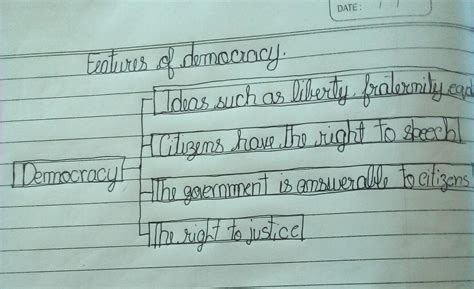 DATE: / /
Features of democracy.
Ideas such as liberty, fraternity
Citizens have the right to speech
Democracy
The government is answerable to citizens
The right to justice